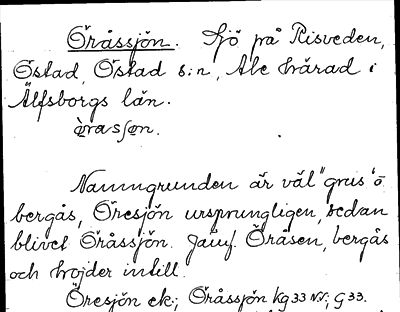 Öråssjön. Sjö på Risveden,
Östad, Östad s:n, Ale härad i
Älfsborgs län.
Namngrunden är väl "grus"ö
bergås, Öresjön ursprungligen, sedan
blivet Öråssjön. Jämf. Öråsen, bergås
och höjder intill.
Öresjön ek; Öråssjön kg 33 NV; G 33.